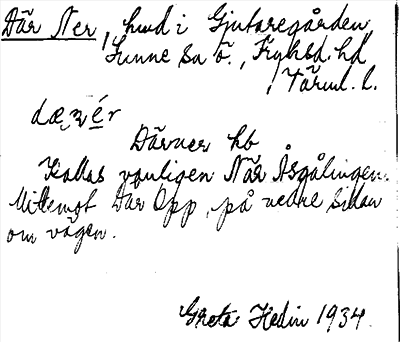 Där Ner, hmd i Gjutaregården,
Sunne sn ö., Fryksd. hd,
Värml. l.
dæṛ nér
Därner hb
Kallas vanligen När Åsgålingen.
Mittemot Där Opp, på nedre sidan
om vägen.
Greta Hedin 1934.